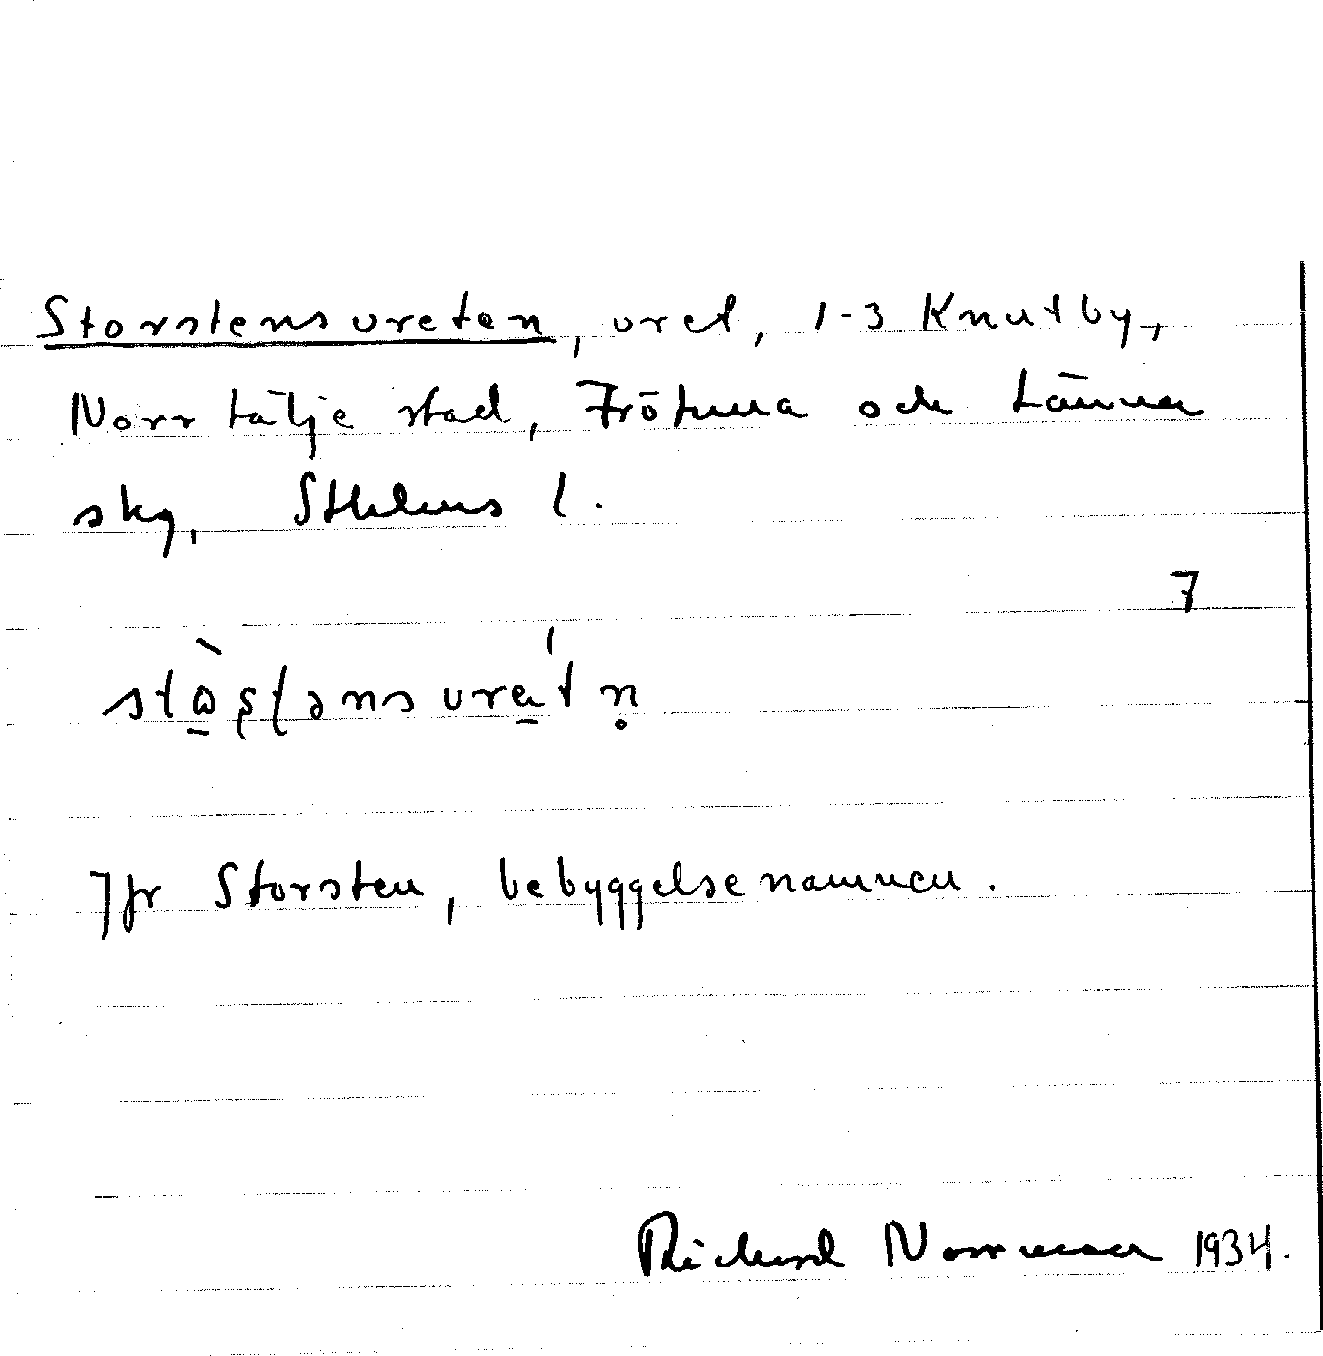 Storstensvreten, vret, 1-3 Knutby,
Norrtälje stad, Frötuna och Länna
skg, Sthlms l.
7
Jfr Storsten, bebyggelsenamnen.
Richard Norrman 1934.